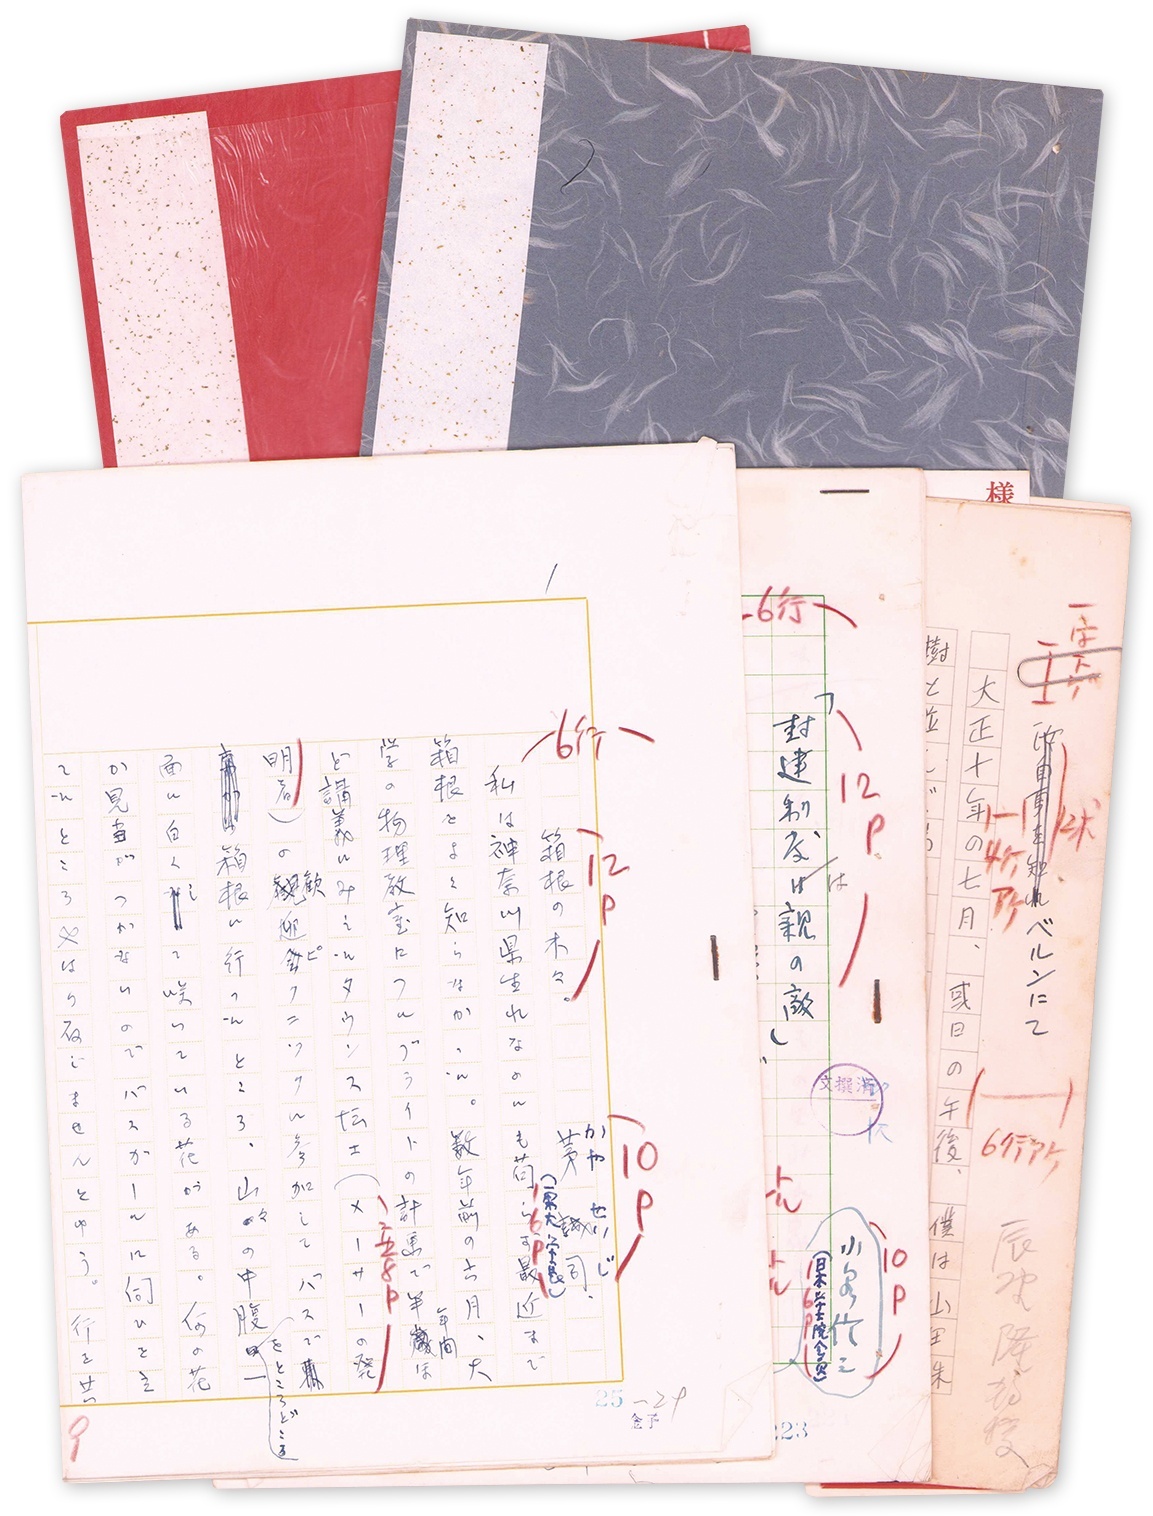 様
一字下ゲ
ベルンにて
2米
4ケ
アケ
6字アケ
辰野隆
大正十年の七月、或日の午後、僕は山田朱
樹と並んで
6行
12P
「封建制度は親の敵」
は
文撰済
10P
小泉信三
(日本学士院会員)
6P
223
1
6行
12P
箱根の木々。
10P
かや せいじ
茅 誠司.
(東大学長)
6P
私は神奈川県生れなのにも荀らず最近まで
箱根をよく知らなかった。数年前の六月、大
学の物理教室にフルブライトの計画で半年間
ど講義にみえたタウンス博士(メーサーの発
五8P
明者)の歓迎ピクニックに参加してバスで
箱根に行ったところ、山々の中腹一
をところどころ
面に白くして咲いている花がある。何の花
か見当がつかないのでバスガールに伺ひを立
てたところやはり存じませんとゆう。行を共
9
25-24
金下